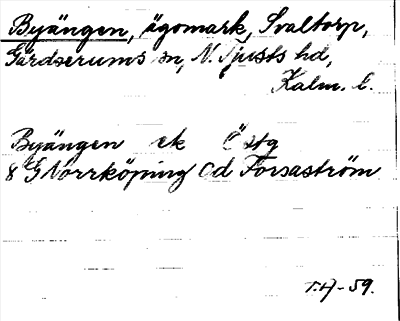 Byängen, ägomark, Svaltorp,
Gärdserums sn, N. Tjusts hd,
Kalm. l.
Byängen ek Östg
8 G Norrköping Cd Forsaström
T.A-59.